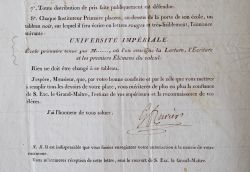 7°. Toute distribution de prix faite publiquement est défendue.
8°. Chaque Instituteur Primaire placera, au-dessus de la porte de son école, un
tableau noir, sur lequel il fera écrire en lettres rouges et très-lisiblement, l'annonce
suivante:
UNIVERSITÉ IMPÉRIALE
École primaire tenue par M......, où l'on enseigne la Lecture, l'Écriture
et les premiers Élémens du calcul.
Rien ne doit être changé à ce tableau.
J'espère, Monsieur, que, par votre bonne conduite et par le zèle que vous mettrez
à remplir tous les devoirs de votre place, vous mériterez de plus en plus la confiance
de S. Exc. le Grand-Maître, l'estime de vos supérieurs et la reconnaissance de vos
élèves.
J'ai l'honneur de vous saluer.
N. B. Il est indispensable que vous fassiez enregistrer votre autorisation à la mairie de votre
Vous m'accuserez réception de cette lettre, sous le couvert de S. Exc. le Grand-Maître.